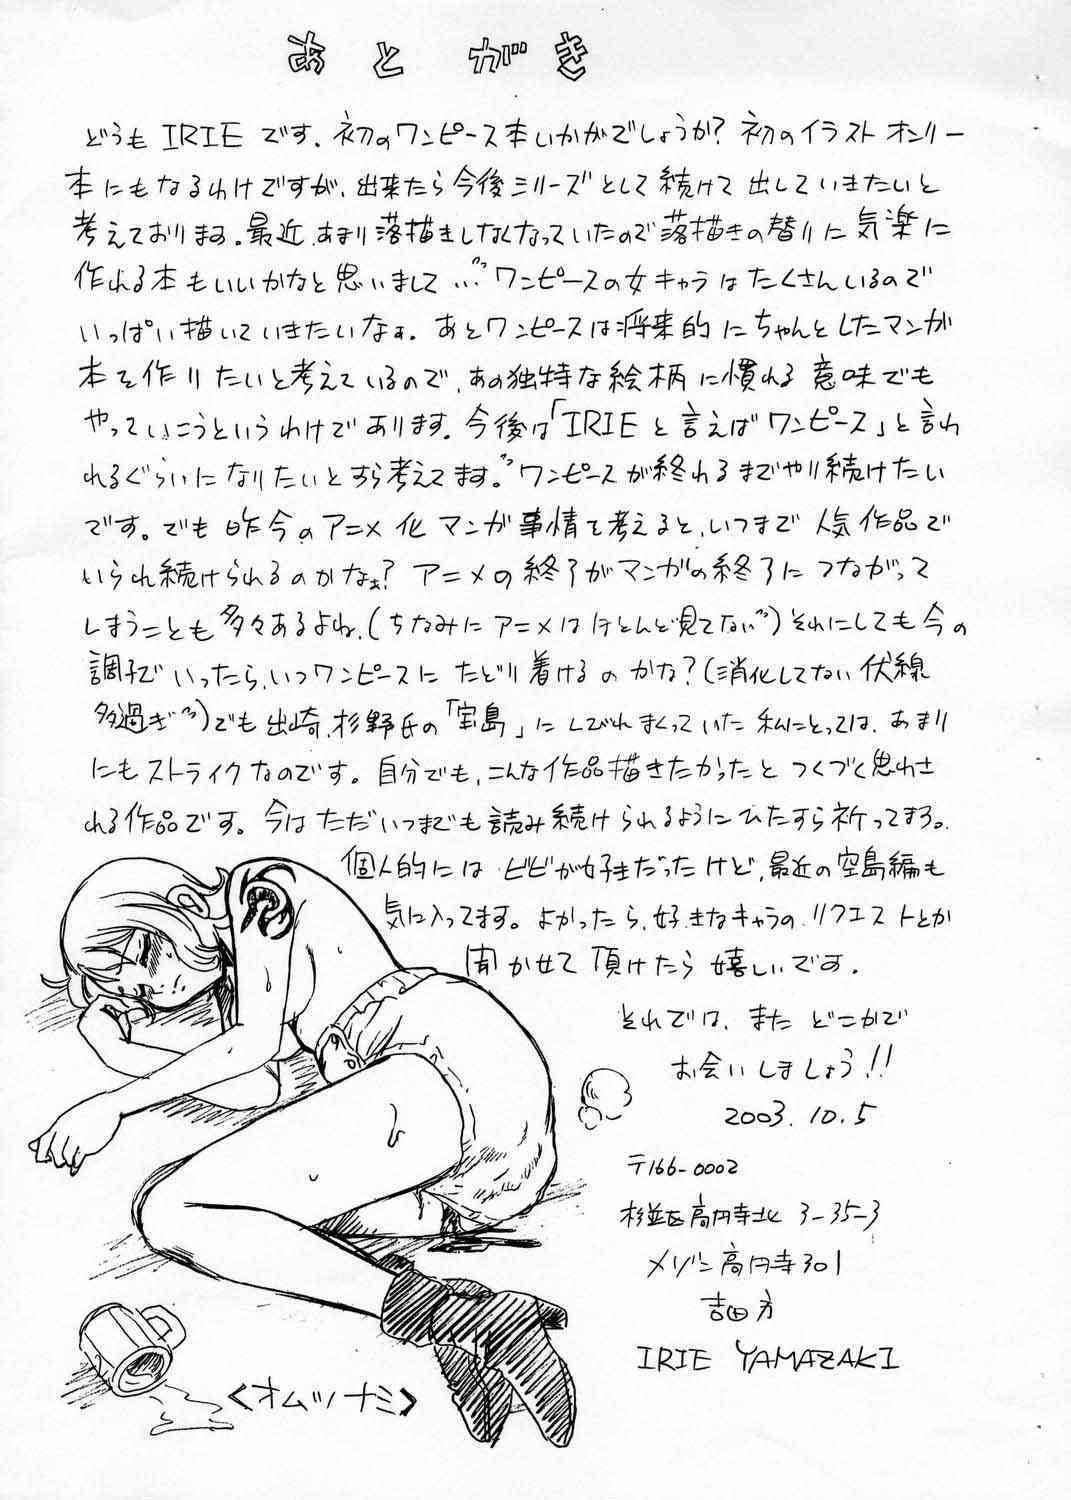 あとがき
どうもIRIEです.初のワンピース本いかがでしょうか?初のイラストオンリー
本にもなるわけですが、出来たら今後シリーズとして続けて出していきたいと
考えております。最近、あまり落描きしなくなっていたので落描きの替りに気楽に
作れる本もいいかなと思いまして…ワンピースの女キャラはたくさんいるので
いっぱい描いていきたいなぁ。あとワンピースは将来的にちゃんとしたマンガ
本を作りたいと考えているので、あの独特な絵柄に慣れる意味でも
やっていこうというわけであります。今後は「IRIEと言えばワンピース」と言わ
れるぐらいになりたいとすら考えてます。ワンピースが終わるまでやり続けたい
です。でも昨今のアニメ化マンガ事情を考えると、いつまで人気作品で
いられ続けられるのかなぁ?アニメの終了がマンガの終了につながって
しまうことも多々あるよね、(ちなみにアニメはほとんど見てない)それにしても今の
調子でいったら、いつワンピースにたどり着けるのかな?(消化してない伏線
多過ぎ)でも出崎、杉野氏の「宝島」にしびれまくっていた私にとっては、あまり
にもストライクなのです。自分でも、こんな作品描きたかったとつくづく思わさ
れる作品です。今はただいつまでも読み続けられるようにひたすら祈ってまする。
個人的にはビビが好きだったけど、最近の空島編も
気に入ってます。よかったら、好きなキャラのリクエストとか
聞かせて頂けたら嬉しいです.
それでは、またどこかで
お会いしましょう!!
2003.10.5
〒166-0002
杉並区高円寺北3-35-3
メゾン高円寺301
吉田方
IRIE YAMAZAKI
<オムツナミ>